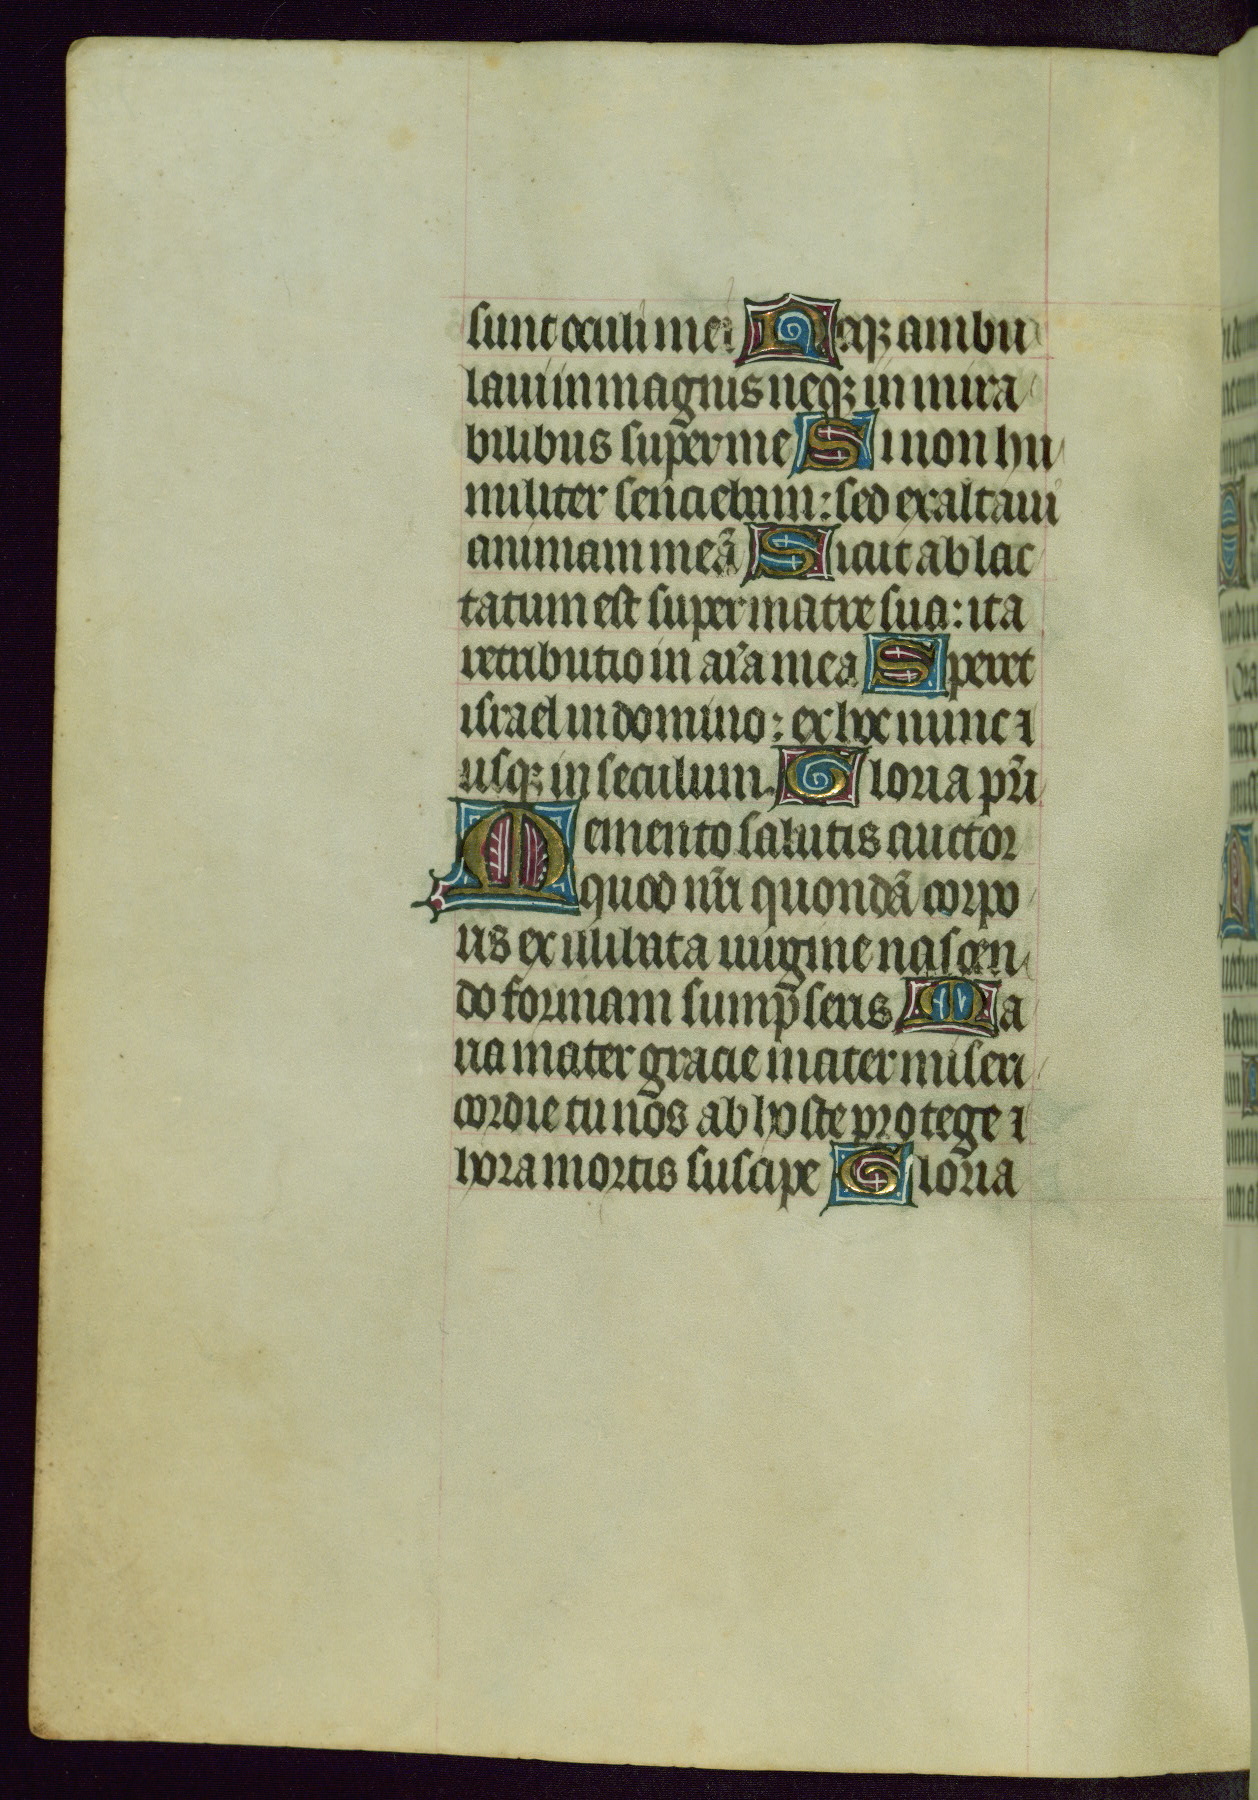 sunt oculi mei Neqꝫ ambu
laui in magnis neqꝫ in mira
bilibus sup̱er me Si non hu
militer senciebam: sed exaltaui
animam meā Sicut ablac
tatum est super matre sua: ita
retributio in aĩa mea Speret
israel in domino: ex hoc nunc ⁊
usqꝫ in seculum. Gloria pr̃i
Memento salutis auctor
quod nr̃i quondā corpo
ris ex illibata uirgine nascen
do formam sump̄seris Ma
ria mater gracie mater miseri
cordie tu nos ab hoste protege ⁊
hora mortis suscipe Gloria